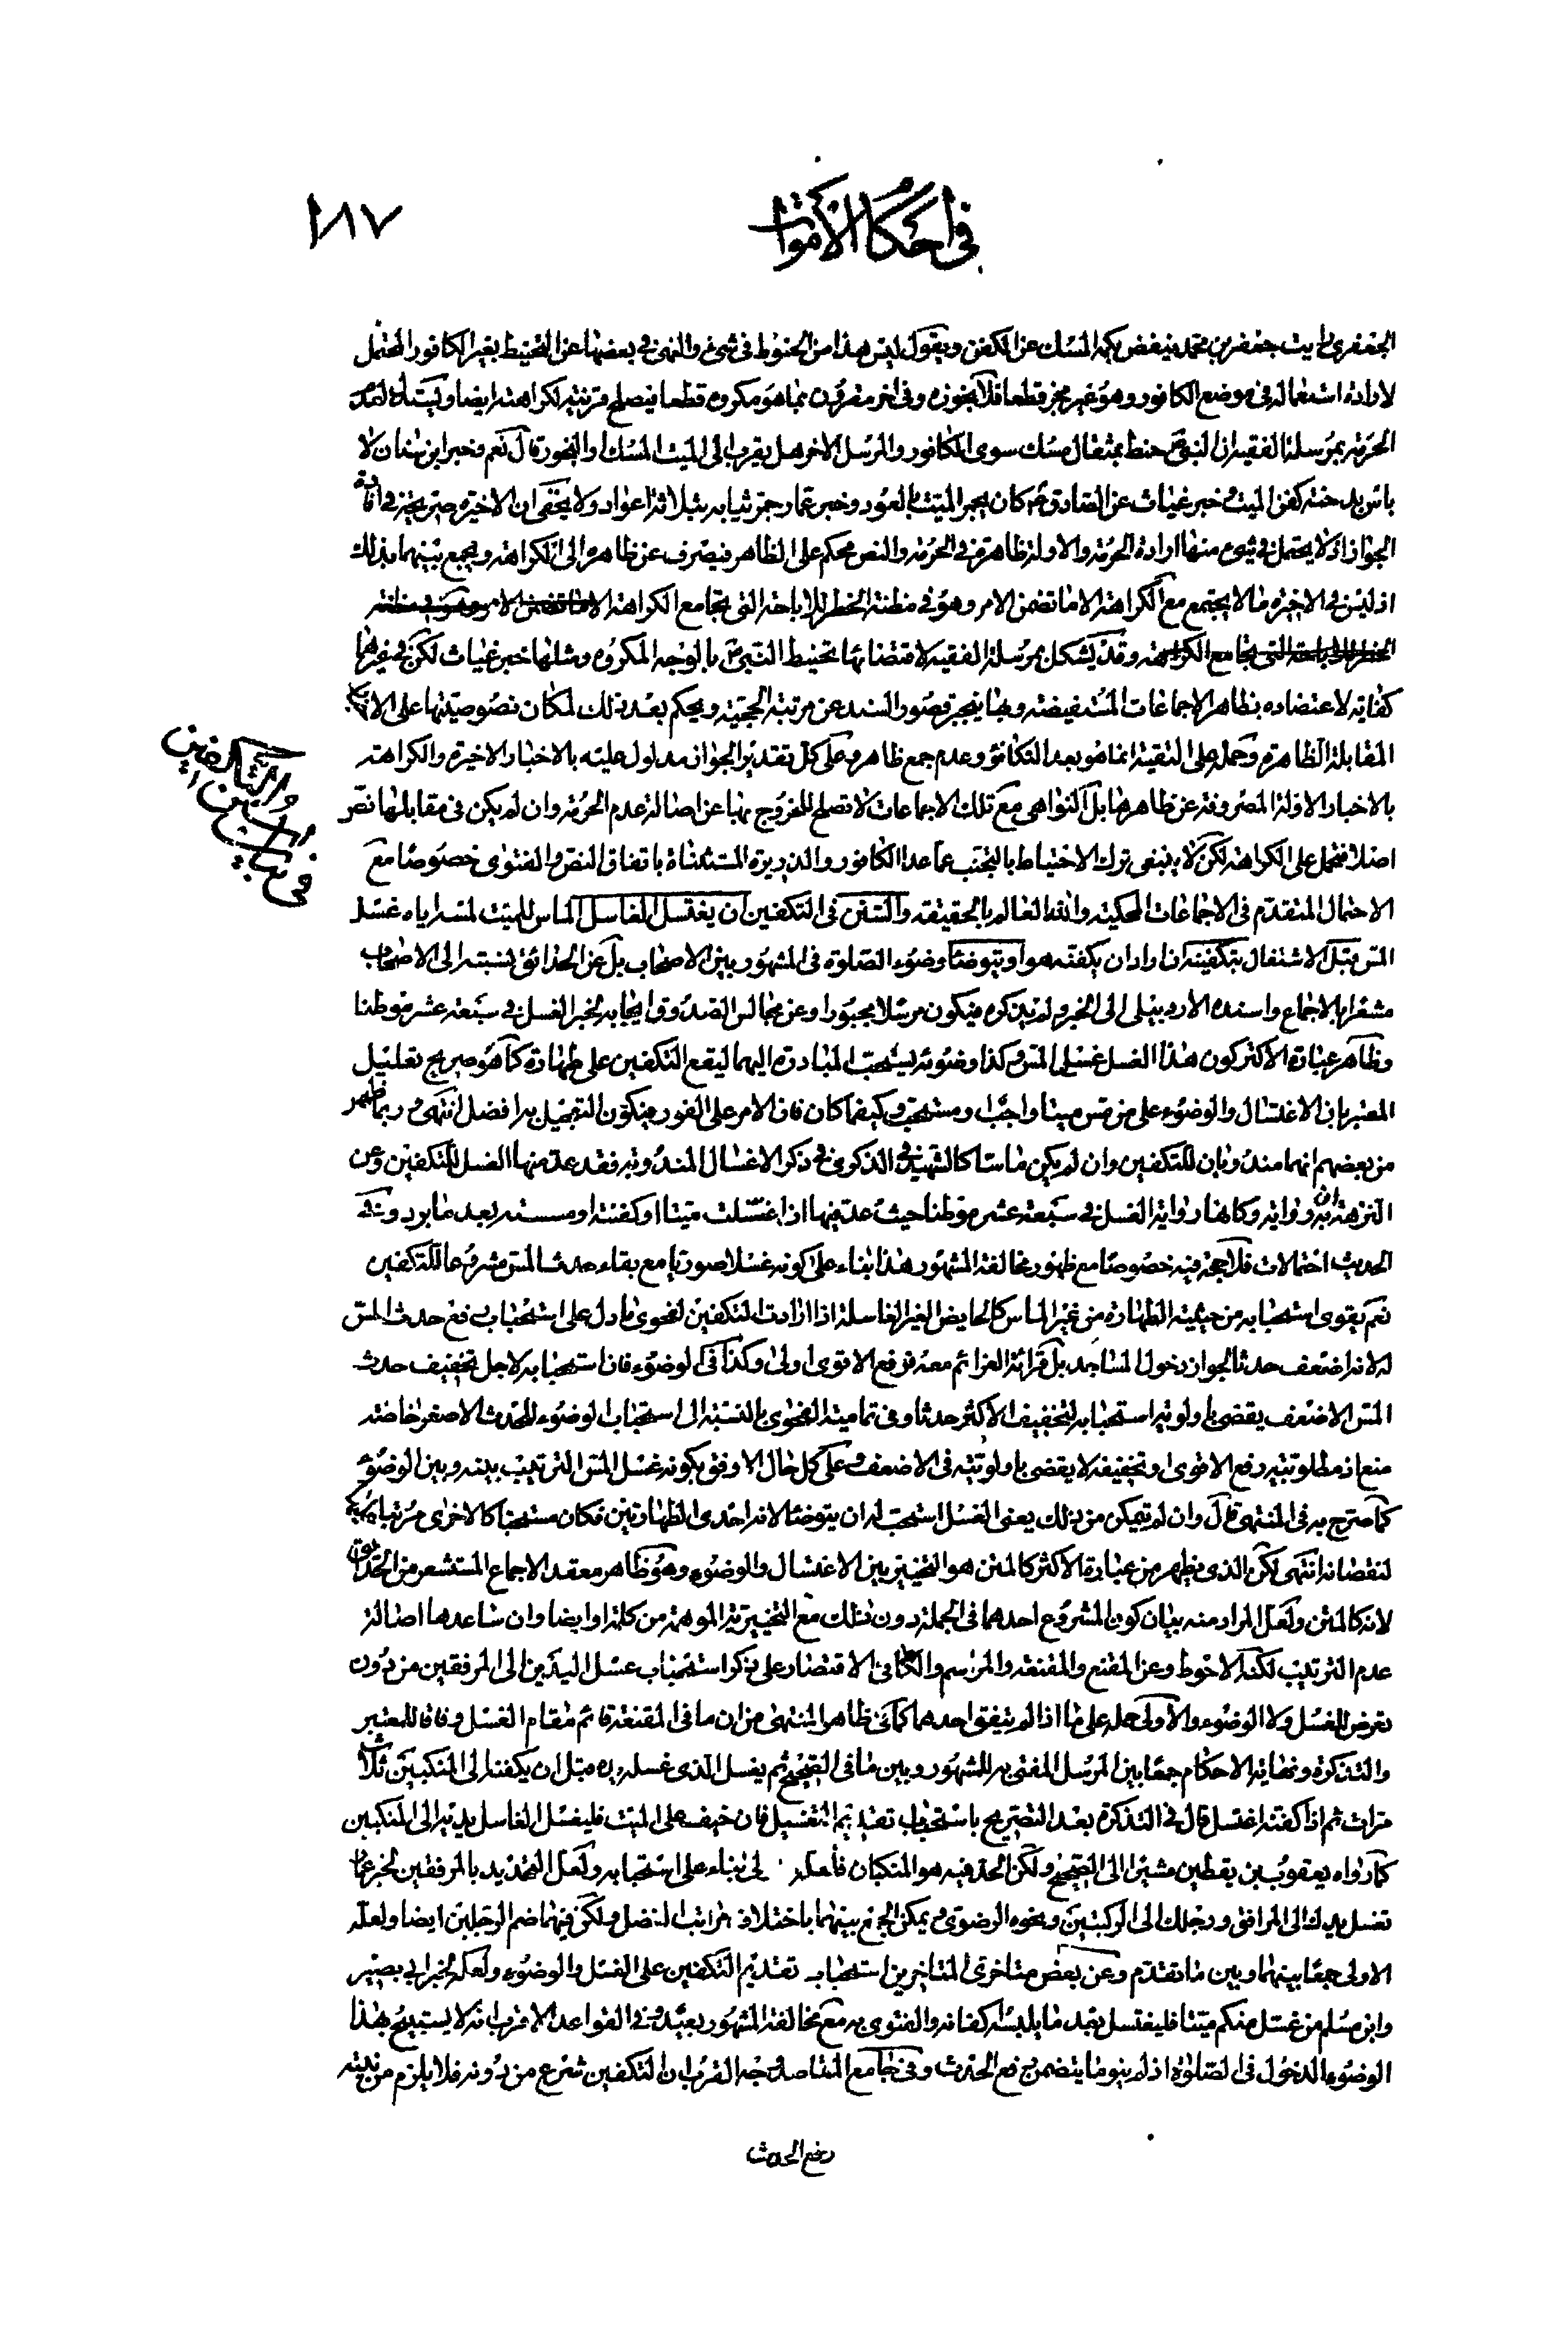 في احكام الأموات
١٨٧
الجعفري رايت جعفر بن محمد ينفض بكمه المسك عن الكفن ويقول ليس هذا من الحنوط في شئ والنهى في بعضها عن التحنيط بغير الكافور المحتمل
لارادة استعماله في موضع الكافور وهو غير مجز قطعا فلا يجوز وفي اخر مقرون بما هو مكروه قطعا فيصلح قرينة لكراهته ايضا ويستدل لعدم
الحرمة بمرسلة الفقيه ان النبي حنط بمثقال مسك سوى الكافور والمرسل الاخر هل يقرب الى الميت المسك او البخور قال نعم وخبر ابن سنان لا
باس بدخنة كفن الميت وخبر غياث عن الصادق كان يجمر الميت بالعود وخبر عمار جمر ثيابه بثلاثة اعواد ولا يخفى ان الاخيرة صريحة في افادة
الجواز اذ لا يحتمل في شئ منها ارادة الحرمة والاولة ظاهرة في الحرمة والنص محكم على الظاهر فيصرف عن ظاهره الى الكراهة ويجمع بينهما بذلك
اذ ليس في الاخيرة ما لا يجتمع مع الكراهة الا ما تضمن الامر وهو في مظنة الخطر للاباحة التي تجامع الكراهة
وقد يشكل بمرسلة الفقيه لاقتضائها تحنيط النبي بالوجه المكروه ومثلها خبر غياث لكن في غيرهما
كفاية لاعتضاده بظاهر الاجماعات المستفيضة وبها ينجبر قصور السند عن مرتبة الحجية ويحكم بعد ذلك لمكان نصوصيتها على
المقابلة الظاهرة وحمله على التقية انما هو بعد التكافؤ وعدم جمع ظاهر وعلى كل تقدير الجواز مدلول عليه بالاخبار الاخيرة والكراهة
بالاخبار الاولة المصروفة عن ظاهرها بل النواهى مع تلك الاجماعات لا تصلح للخروج بها عن اصالة عدم الحرمة وان لم يكن في مقابلها نص
اصلا فتحمل على الكراهة لكن لا ينبغى ترك الاحتياط بالتجنب عما عدا الكافور والذريرة المستثناة باتفاق النص والفتوى خصوصا مع
الاحتمال المتقدم في الاجماعات المحكية والله العالم بالحقيقة والسنن في التكفين ان يغتسل الغاسل الماس للميت لمسه اياه غسل
المس قبل الاشتغال بتكفينه اذا اراد ان يكفنه هو او يتوضأ وضوء الصلوة في المشهور بين الاصحاب بل عن الحدائق نسبته الى الاصحاب
مشعرا بالاجماع واسنده الاردبيلى الى الخبر ولم يذكره فيكون مرسلا مجبورا وعن مجالس الصدوق ايجابه لخبر الغسل في سبعة عشر موطنا
وظاهر عبارة الاكثر كون هذا الغسل غسل المس وكذا وضوئه يستحب المبادرة اليهما ليقع التكفين على طهارة كما هو صريح تعليل
المعتبر بان الاغتسال والوضوء على من مس ميتا واجب او مستحب وكيفما كان فان الامر على الفور فيكون التعجيل به افضل انتهى وربما ظهر
من بعضهم انهما مندوبان للتكفين وان لم يكن ماسا كالشهيد في الذكرى في ذكر الاغسال المندوبة فقد عد منها الغسل للتكفين وعن
النزهة ان به رواية وكانها رواية الغسل في سبعة عشر موطنا حيث عد فيها اذا غسلت ميتا او كفنته او مسسته بعد ما يبرد وفي
الحديث احتمالات فلا حجة فيه خصوصا مع ظهور مخالفة المشهور هذا بناء على كونه غسلا صوريا مع بقاء حدث المس مشروعا للتكفين
نعم يقوى استحبابه من حيثية الطهارة من غير الماس كالحايض الغير الغاسلة اذا ارادت التكفين لفحوى ما دل على استحباب رفع حدث المس
له لانه اضعف حدثا لجواز دخول المساجد بل قرائة العزائم معه فرفع الاقوى اولى وكذا في الوضوء فان استحبابه لاجل تخفيف حدث
المس الاضعف يقضى باولوية استحبابه لتخفيف الاكثر حدثا وفي تمامية الفحوى بالنسبة الى استحباب الوضوء للحدث الاصغر خاصة
منع اذ مطلوبية رفع الاقوى او تخفيفه لا يقضى باولويته في الاضعف وعلى كل حال الاوفق بكونه غسل المس الترتيب بينه وبين الوضوء
كما صرح به في المنتهى قال وان لم يتمكن من ذلك يعنى الغسل استحب له ان يتوضأ لانه احدى الطهارتين فكان مستحبا كالاخرى ومرتبا
لنقصانه انتهى لكن الذى يظهر من عبارة الاكثر كالمتن هو التخيير بين الاغتسال والوضوء وهو ظاهر معقد الاجماع المستشعر من الحدائق
لانه كالمتن ولعل المراد منه بيان كون المشروع احدهما في الجملة دون ذلك مع التخييرية الموهمة من كلمة او ايضا وان ساعدها اصالة
عدم الترتيب لكنه الاحوط وعن المقنع والمقنعة والمراسم والكافي الاقتصار على ذكر استحباب غسل اليدين الى المرفقين من دون
تعرض للغسل ولا الوضوء والاولى حمله على ما اذا لم يتفق احدهما كما في ظاهر المنتهى من ان ما في المقنعة قائم مقام الغسل وفاقا للمعتبر
والتذكرة ونهاية الاحكام جمعا بين المرسل المفتى به للمشهور وبين ما في الصحيح ثم يغسل الذى غسله يده قبل ان يكفنه الى المنكبين ثلاث
مرات ثم اذا كفنه اغتسل قال في التذكرة بعد التصريح باستحباب تقديم التغسيل فان خيف على الميت فليغسل الغاسل يديه الى المنكبين
كما رواه يعقوب بن يقطين مشيرا الى الصحيح ولكن الحد فيه هو المنكبان فلعله لى بناء على استحبابه ولعل التحديد بالمرفقين لخبر عمار
تغسل يديك الى المرافق ورجلك الى الركبتين ونحوه الرضوى ويمكن الجمع بينهما باختلاف مراتب الفضل ولكن فيهما ضم الرجلين ايضا ولعله
الاولى جمعا بينهما وبين ما تقدم وعن بعض متاخرى المتاخرين استحباب تقديم التكفين على الغسل والوضوء ولعله لخبر ابى بصير
وابن مسلم من غسل منكم ميتا فليغتسل بعد ما يلبسه اكفانه والفتوى به مع مخالفة المشهور بعيد وفي القواعد الاقرب انه لا يستبيح بهذا
الوضوء الدخول في الصلوة اذ لم ينو ما يتضمن رفع الحدث وفي جامع المقاصد وجه القرب ان التكفين شرع من دونه فلا يلزم من نيته
رفع الحدث